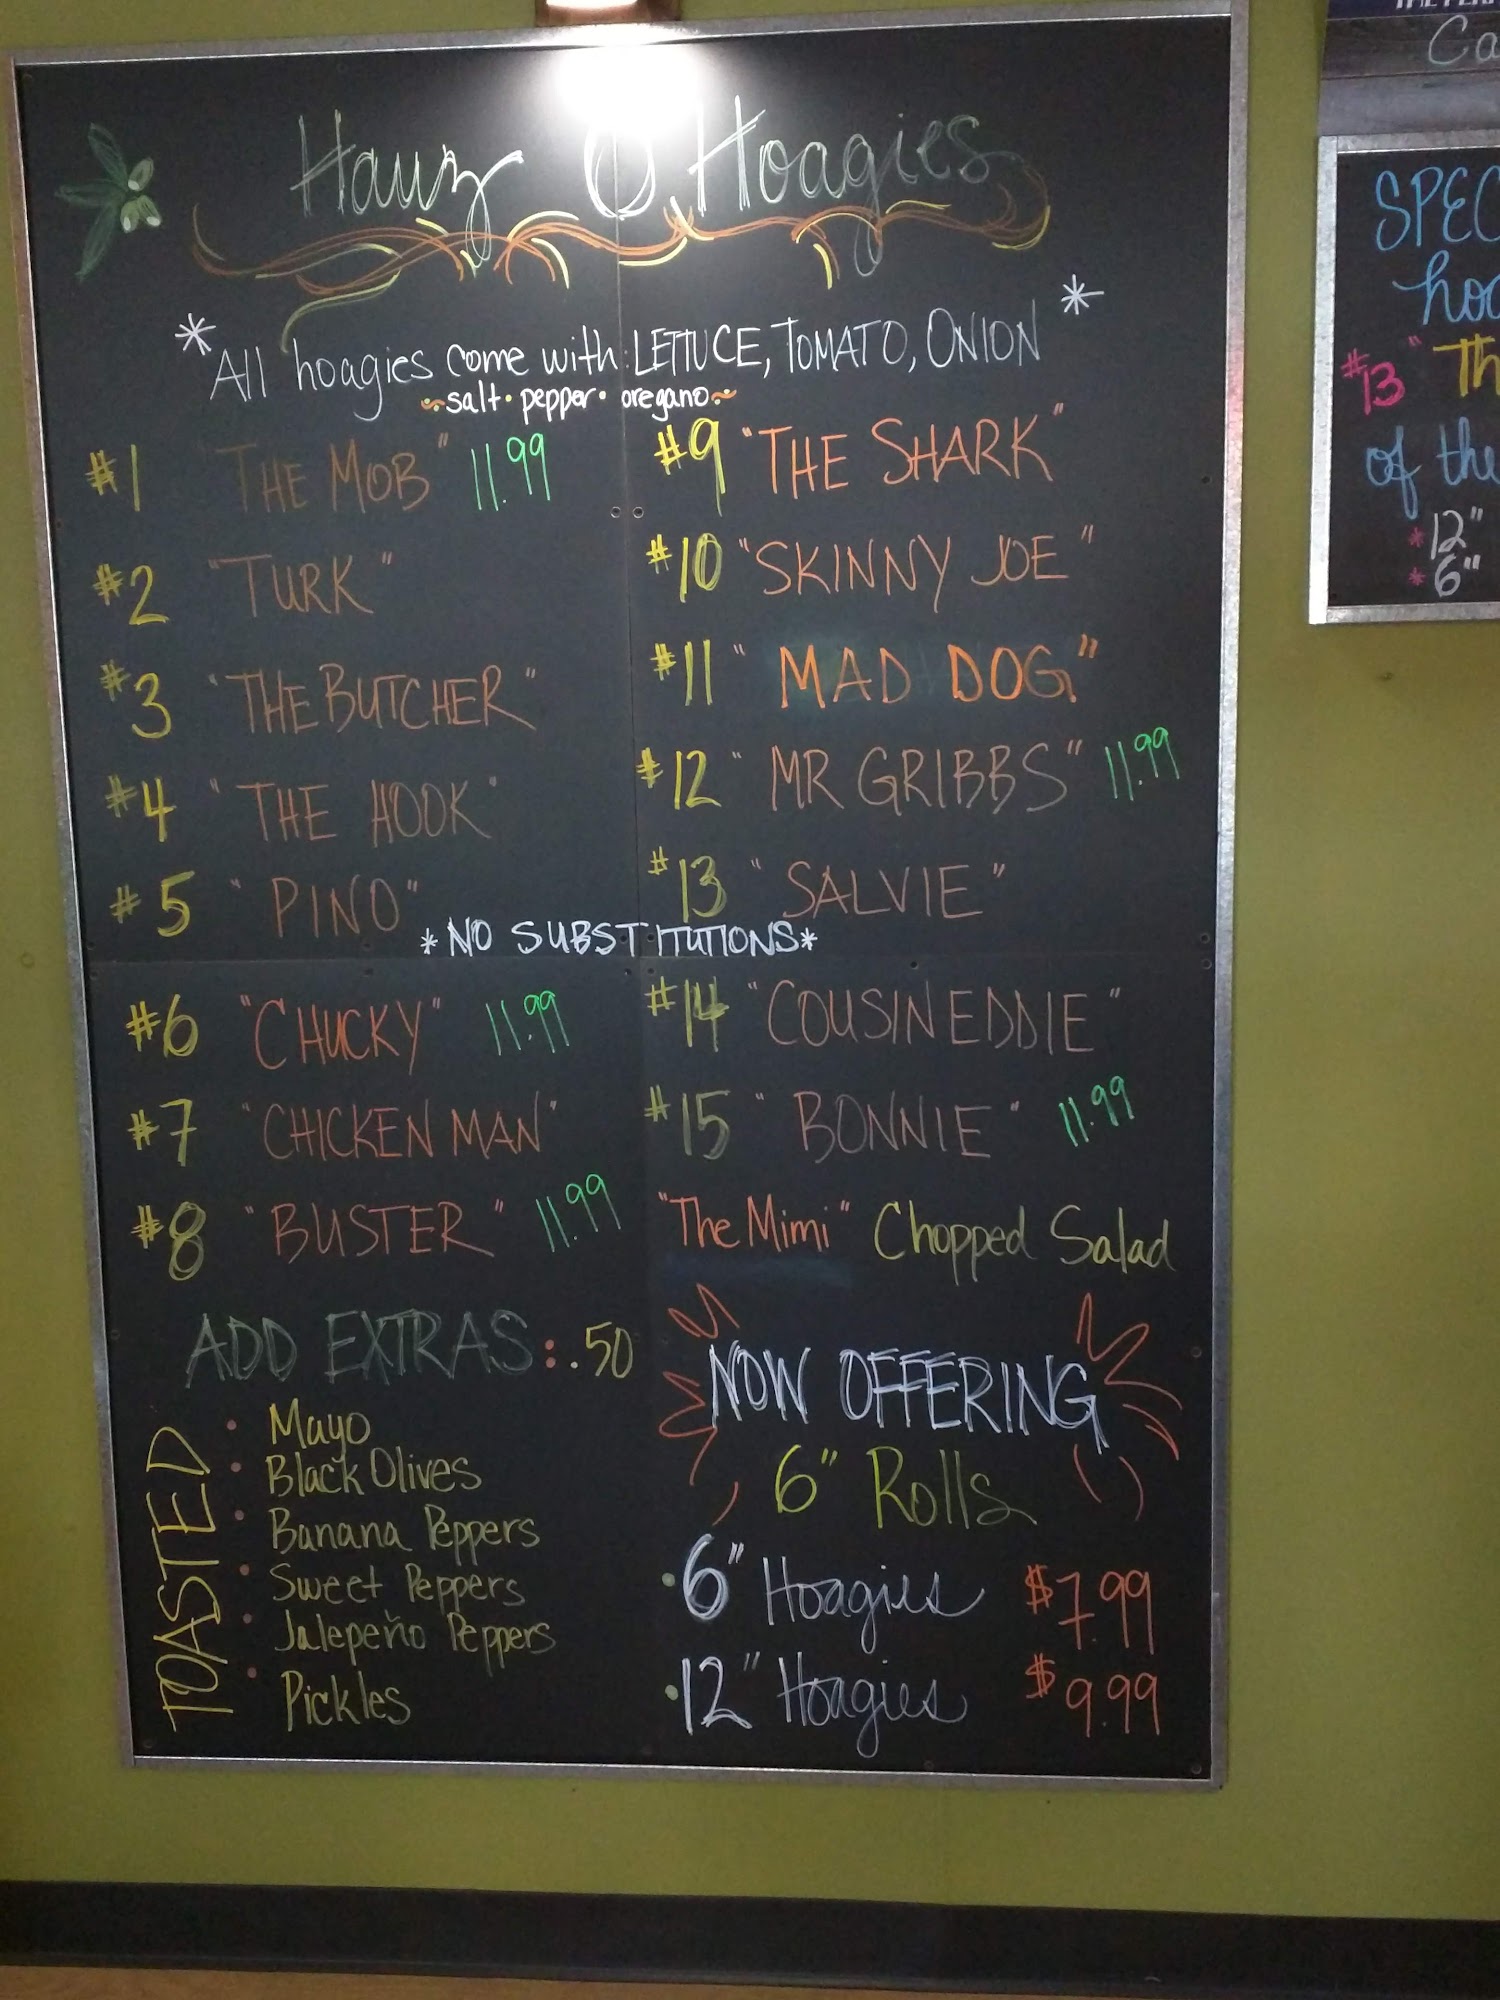 Hauz O Hoagies
* All hoagies come with: LETTUCE, TOMATO, ONION *
~ salt • pepper • oregano ~
#1 "THE MOB" 11.99
#2 "TURK"
#3 "THE BUTCHER"
#4 "THE HOOK"
#5 "PINO"
#9 "THE SHARK"
#10 "SKINNY JOE"
#11 "MAD DOG"
#12 "MR GRIBBS" 11.99
#13 "SALVIE"
*NO SUBSTITUTIONS*
#6 "CHUCKY" 11.99
#7 "CHICKEN MAN"
#8 "BUSTER" 11.99
#14 "COUSIN EDDIE"
#15 "BONNIE" 11.99
"The Mimi" Chopped Salad
ADD EXTRAS: .50
TOASTED
• Mayo
• Black Olives
• Banana Peppers
• Sweet Peppers
• Jalepeño Peppers
• Pickles
NOW OFFERING
6" Rolls
• 6" Hoagies $7.99
• 12" Hoagies $9.99
Ca
SPEC
hoa
#13 "Th
of the
* 12"
* 6"